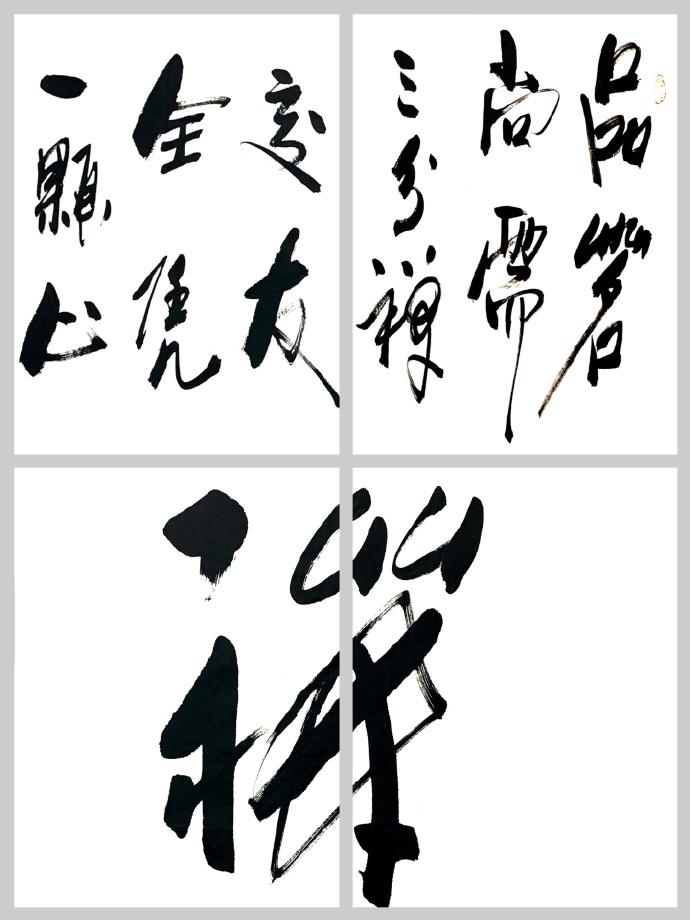 品茗
尚需
三分禪
交友
全凭
一顆心
禪